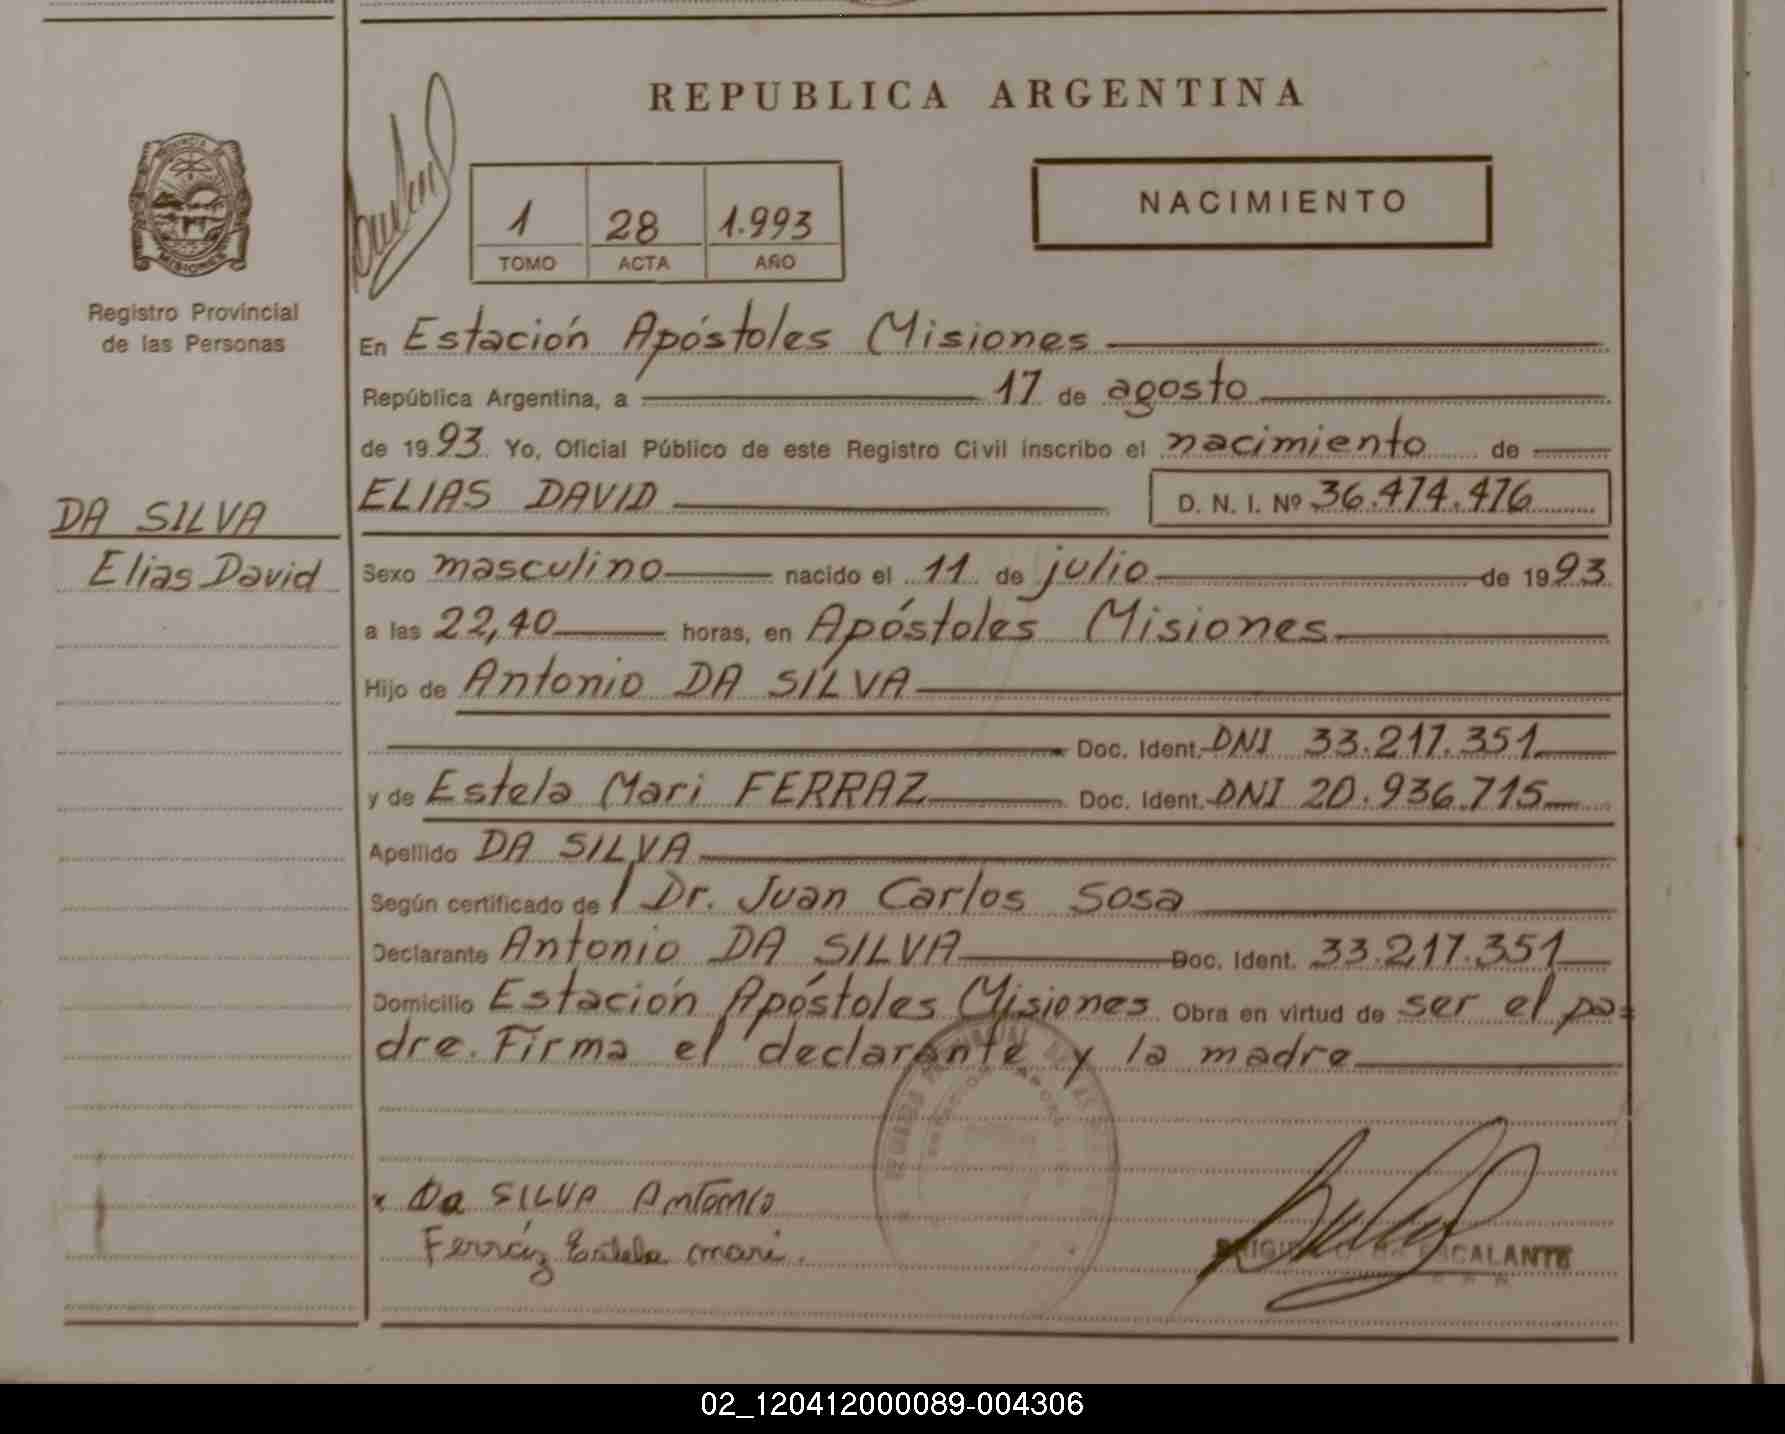 REPUBLICA ARGENTINA
PROVINCIA DE
MISIONES
Registro Provincial
de las Personas
1 28 1.993
TOMO ACTA AÑO
NACIMIENTO
En Estación Apóstoles Misiones
República Argentina, a 17 de agosto
de 1993. Yo, Oficial Público de este Registro Civil inscribo el nacimiento de
ELIAS DAVID D. N. I. Nº 36.474.476
DA SILVA
Elias David
Sexo masculino nacido el 11 de julio de 1993
a las 22,40 horas, en Apóstoles Misiones
Hijo de Antonio DA SILVA
Doc. Ident. DNI 33.217.351
y de Estela Mari FERRAZ Doc. Ident. DNI 20.936.715
Apellido DA SILVA
Según certificado de l Dr. Juan Carlos Sosa
Declarante Antonio DA SILVA Doc. Ident. 33.217.351
Domicilio Estación Apóstoles Misiones Obra en virtud de ser el pa=
dre. Firma el declarante y la madre
x Da SILVA Antonio
Ferráz Estela mari.
ESCALANTE
02_120412000089-004306